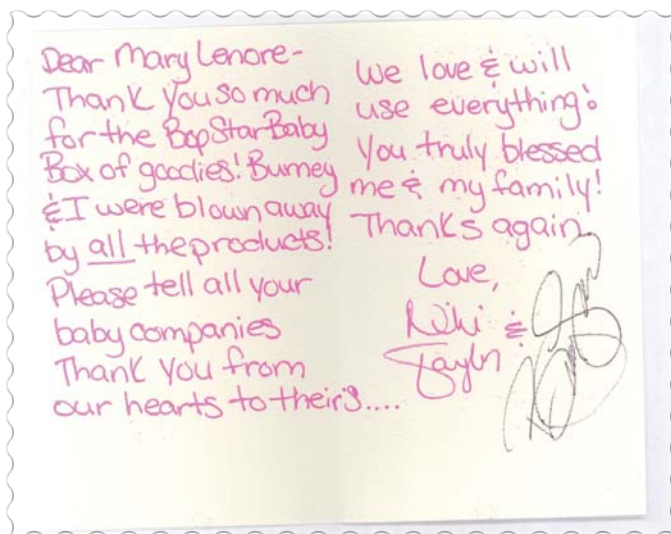 Dear Mary Lenore-
Thank you so much
for the BopStarBaby
Box of goodies! Burney
& I were blown away
by all the products!
Please tell all your
baby companies
Thank you from
our hearts to their's....
We love & will
use everything!
You truly blessed
me & my family!
Thanks again
Love,
Niki &
Taylin